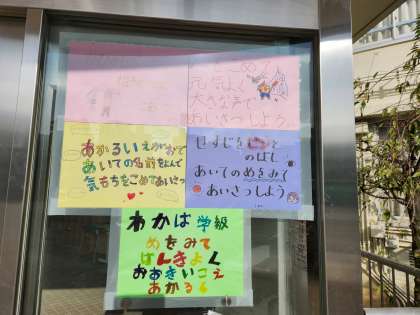 元気よく
大きな声で
あいさつしよう。
あかるいえがおで
あいての名前をよんで
気もちをこめてあいさつ
せすじを
のばし
あいてのめをみて
あいさつしよう
わかば学級
めをみて
げんきよく
おおきいこえ
あかるく